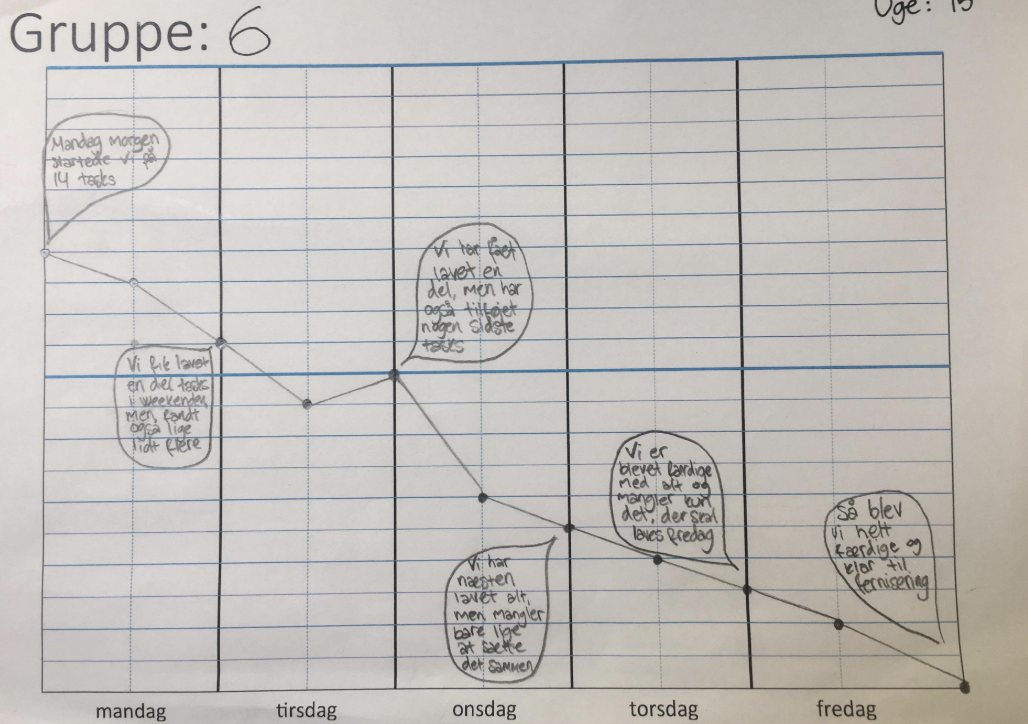 Gruppe: 6
Uge: 15
Mandag morgen
startede vi på
14 tasks
Vi fik lavet
en del tasks
i weekenden,
men, fandt
også lige
lidt flere
Vi har fået
lavet en
del, men har
også tilføjet
nogen sidste
tasks
Vi har
næsten
lavet alt,
men, mangler
bare lige
at sætte
det sammen
Vi er
blevet færdige
med alt og
mangler kun
det, der skal
laves fredag
Så blev
vi helt
færdige og
klar til
fernisering
mandag
tirsdag
onsdag
torsdag
fredag